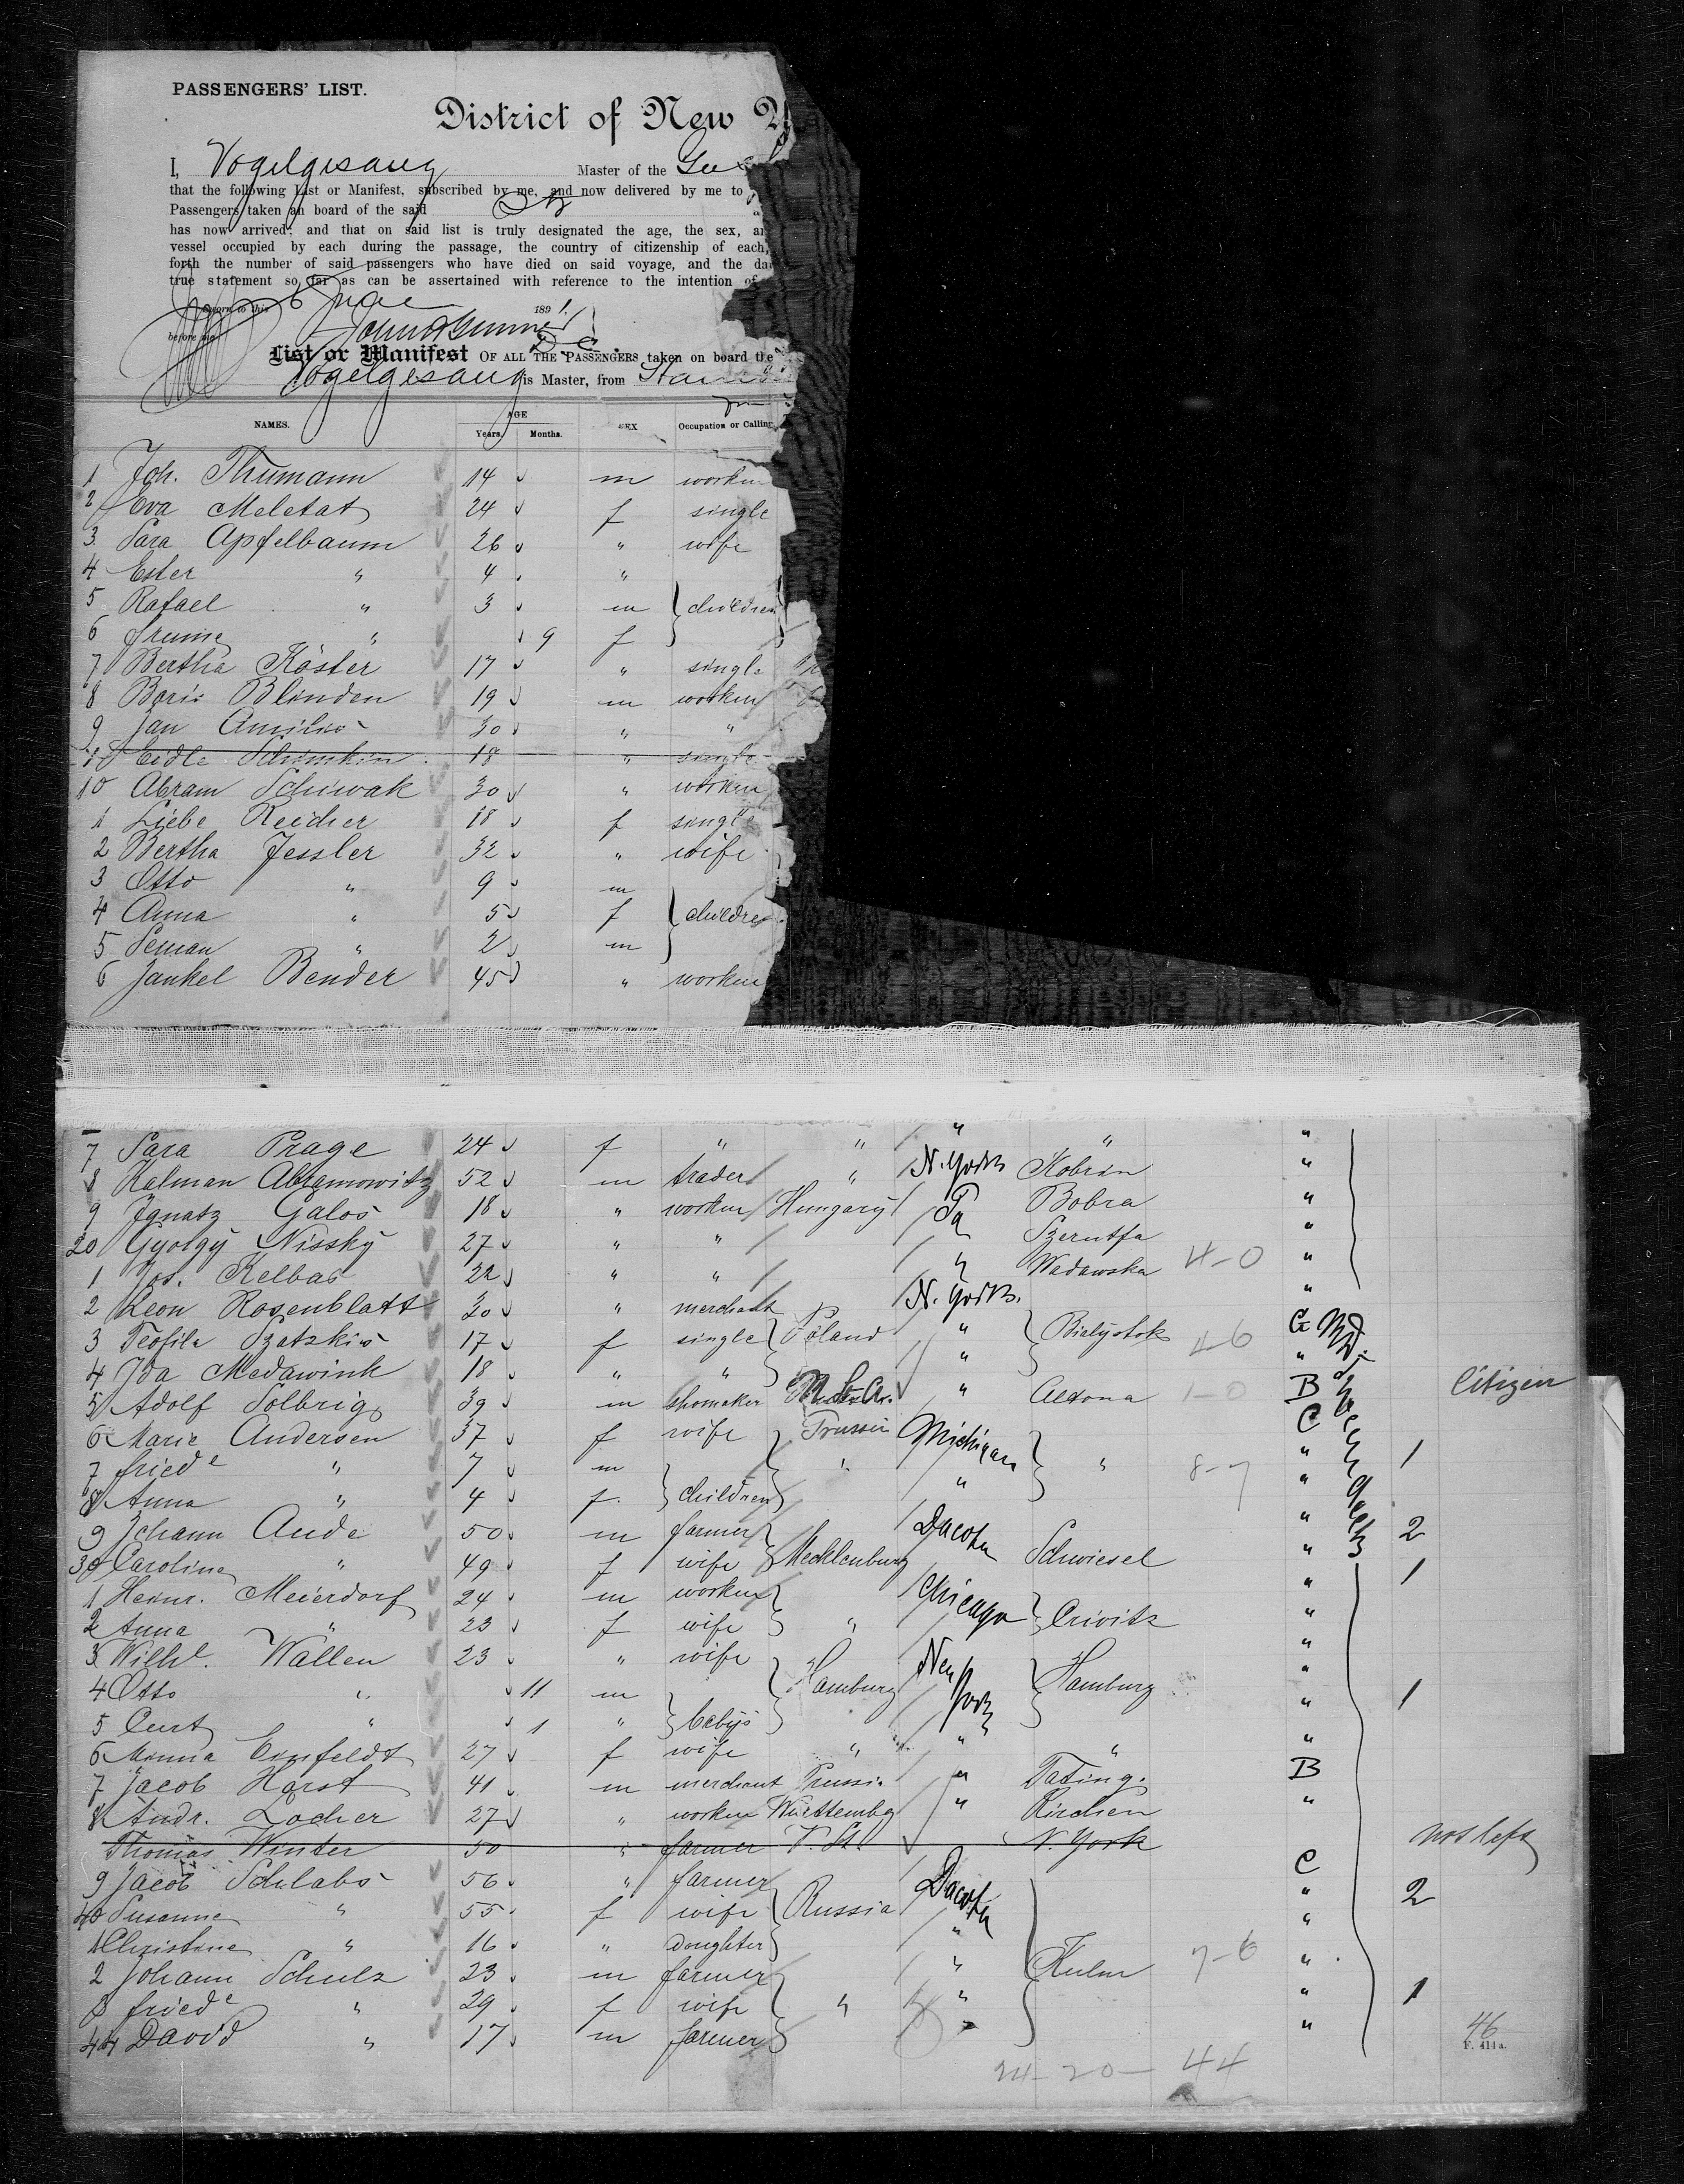 PASSENGERS' LIST.
District of New Y
I, Vogelgesang Master of the
that the following List or Manifest, subscribed by me, and now delivered by me to
Passengers taken on board of the said
has now arrived; and that on said list is truly designated the age, the sex, a
vessel occupied by each during the passage, the country of citizenship of each,
forth the number of said passengers who have died on said voyage, and the da
true statement so far as can be assertained with reference to the intention of
Sworn to this 6 June 1891.
before me
List or Manifest OF ALL THE PASSENGERS taken on board the
Vogelgesang is Master, from
NAMES. AGE Years. Months. SEX Occupation or Calling
1 Joh. Thumann 14 m worker
2 Eva Meletat 24 f single
3. Sara Apfelbaum 26 " wife
4 Ester " 4 "
5 Rafael " 3 m children
6 " 9 f
7 Bertha Köster 17 " single
8 Boris Blinden 19 m worker
9 Jan 30 " "
18 " single
10 Abram Schiwak 30 " worker
1 Liebe Reicher 18 f single
2 Bertha Jessler 32 " wife
3 Otto " 9 m
4 Anna " 5 f childre
5 Seman " 2 m
6 Jankel Bender 45 " worker
7 Sara Prage 24 f " " " " "
8 Kalman Abramowitz 52 m trader " N. York Kobrin "
9 Ignatz Galos 18 " worker Hungary Pa Bobra "
20 Györgÿ Nisskÿ 27 " " Szerutfa "
1 Jos. Kelbas 22 " " " Wadawska 4-0 "
2 Leon Rosenblatt 30 " merchant N. York. "
3 Teofila Szatzkis 17 f single Poland " Bialystok 4-6 G
4 Ida Medawink 18 " " " "
5 Adolf Solbrig 39 m shomaker " Altona 1-0 B Citizen
6 Marie Andersen 37 f wife Prussia Michigan C
7 Friede " 7 m " " 8-7 " 1
8 Anna " 4 f. children " "
9 Johann Aude 50 m farmer Dacota " 2
30 Caroline " 49 f wife Mecklenburg Schwiesel " 1
1 Heinr. Meierdorf 24 m worker Chicago "
2 Anna " 23 f wife " Crivitz "
3 Wilhe. Wallen 23 " wife New York "
4 Otto " 11 m Hamburg Hamburg "
5 Curt " 1 " babys " 1
6 Minna 27 f wife " " " "
7 Jacob Horst 41 m merchant Prussia " Tating. B
8 Andr. Locher 27 " worker Württembg " Kirchen "
Thomas Winter 50 " farmer V. St. N. York not left
9 Jacob Schlabs 56 " farmer Dacota C
40 Susanne " 55 f wife Russia " 2
1 Christine " 16 " doughter " "
2 Johann Schulz 23 m farmer " Kulm 7-6 "
3 Friede " 29 f wife " " " 1
44 David " 17 m farmer "
46
F. 414a.
24-20- 44